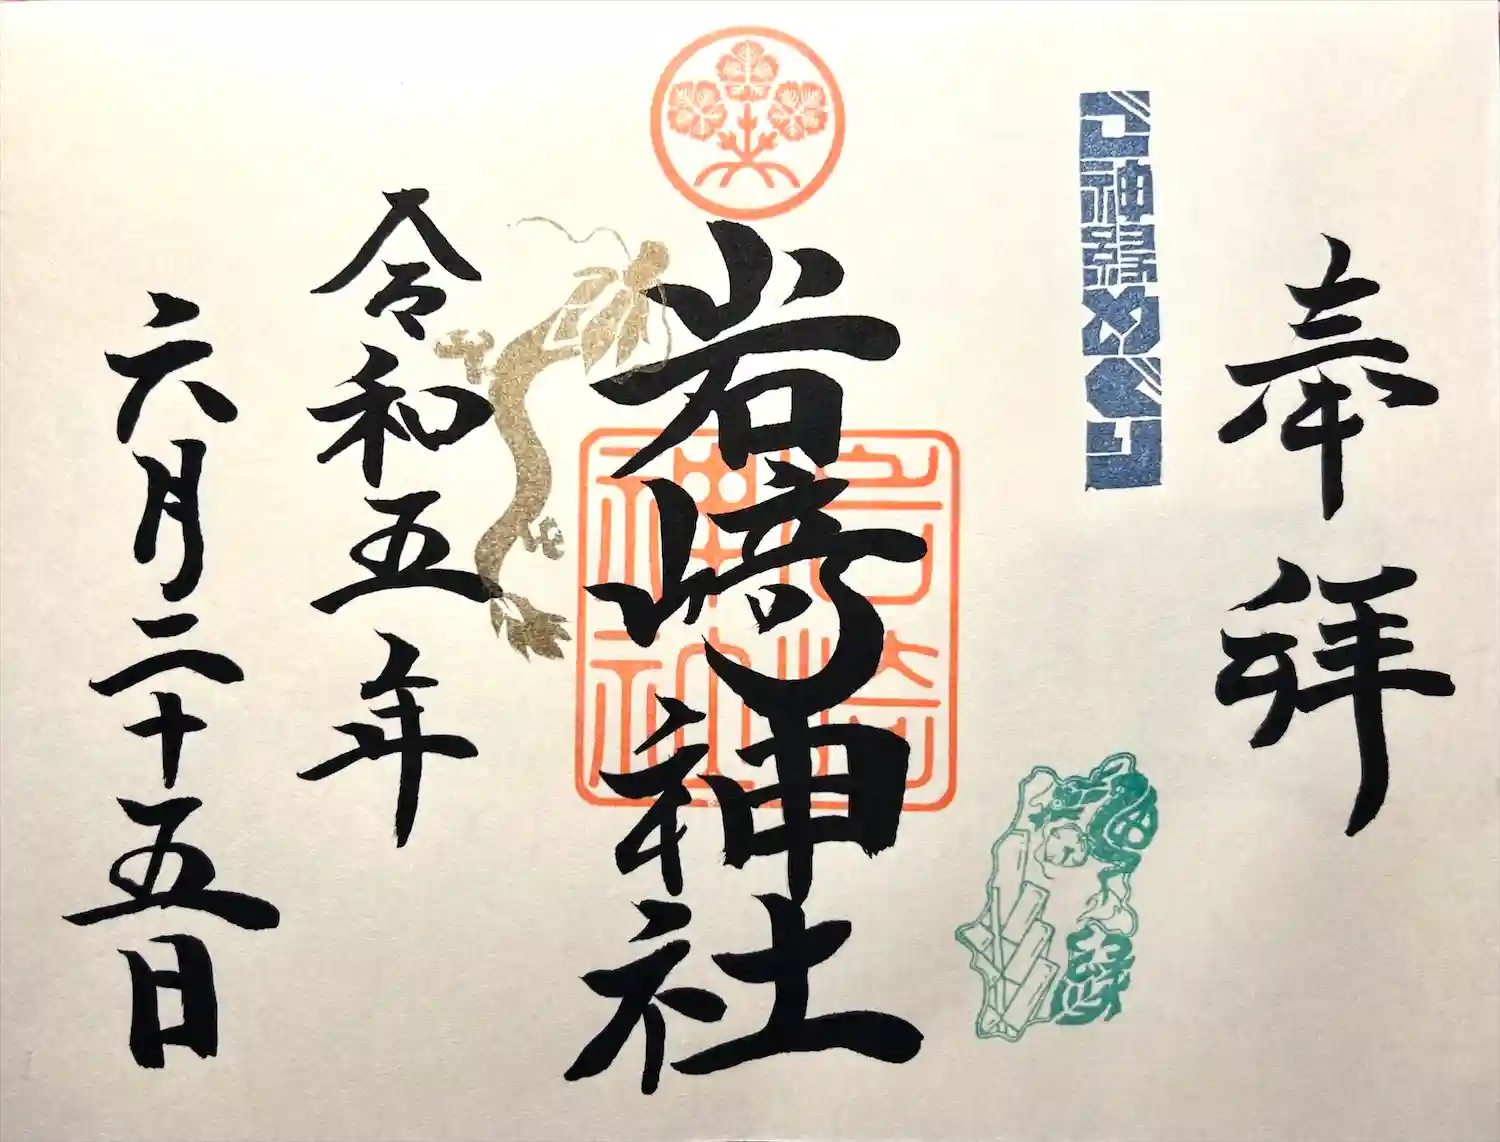 奉拝
ご神縁めぐり
岩崎神社
令和五年
六月二十五日